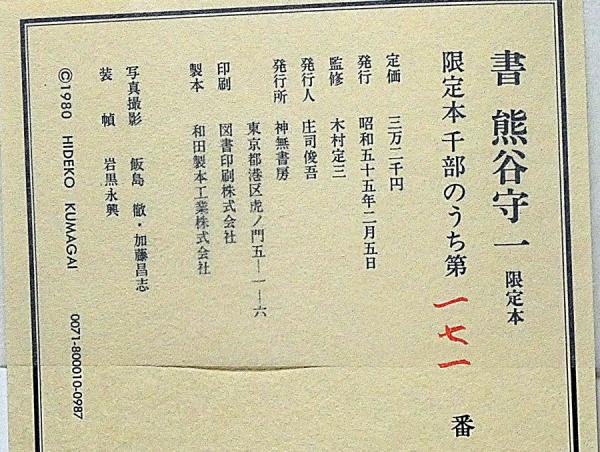 書 熊谷守一 限定本
限定本千部のうち第 一七一 番
定価 三万二千円
発行 昭和五十五年二月五日
監修 木村定三
発行人 庄司俊吾
発行所 神無書房
東京都港区虎ノ門五―一―六
印刷 図書印刷株式会社
製本 和田製本工業株式会社
写真撮影 飯島 徹・加藤昌志
装幀 岩黒永興
©1980 HIDEKO KUMAGAI 0071-800010-0987